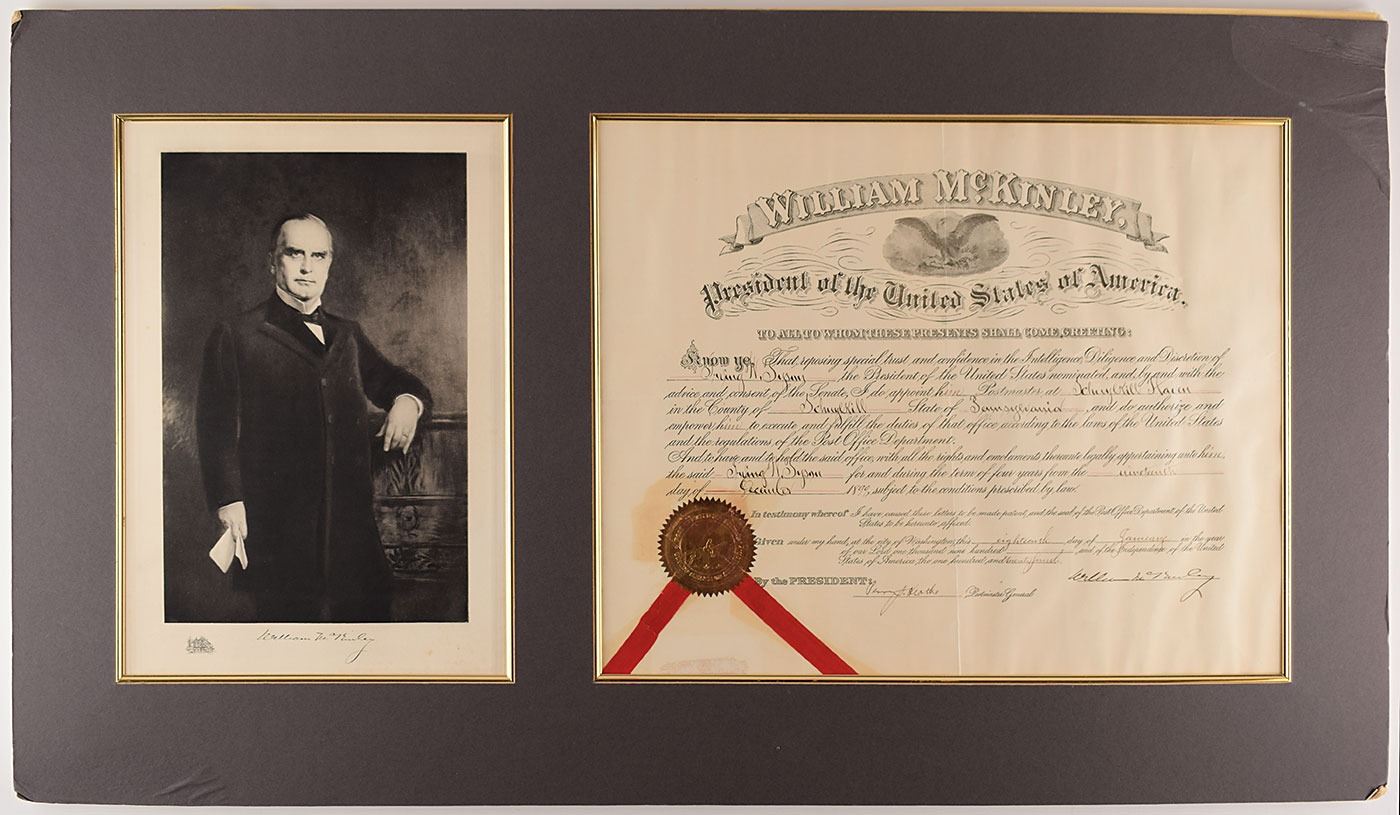 William McKinley
WILLIAM McKINLEY,
President of the United States of America.
TO ALL TO WHOM THESE PRESENTS SHALL COME, GREETING:
Know ye, That reposing special trust and confidence in the Intelligence, Diligence and Discretion of
Irving W. Tyson the President of the United States nominated, and, by and with the
advice and consent of the Senate, I do appoint him Postmaster at Schuylkill Haven
in the County of Schuylkill State of Pennsylvania and do authorize and
empower him to execute and fulfill the duties of that office according to the laws of the United States
and the regulations of the Post Office Department.
And to have and to hold the said office, with all the rights and emoluments thereunto legally appertaining unto him,
the said Irving W. Tyson for and during the term of four years from the nineteenth
day of December 189 , subject to the conditions prescribed by law.
In testimony whereof I have caused these letters to be made patent, and the seal of the Post Office Department of the United
States to be hereunto affixed.
Given under my hand, at the city of Washington, this eighteenth day of January in the year
of our Lord one thousand nine hundred , and of the Independence of the United
States of America, the one hundred and twenty fourth.
By the PRESIDENT: William McKinley
Postmaster General